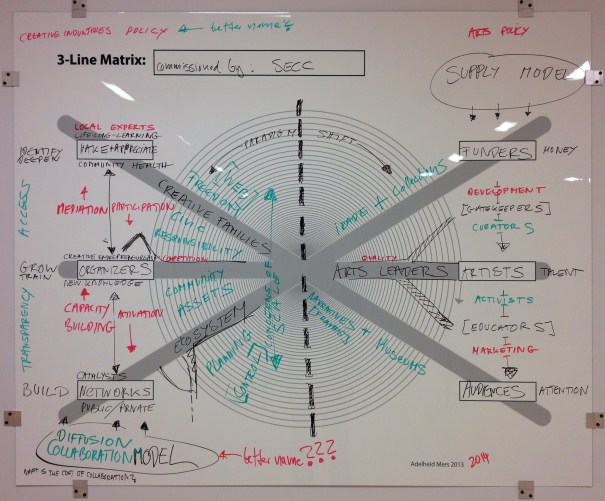 CREATIVE INDUSTRIES POLICY ← better name?
ARTS POLICY
3-Line Matrix: commissioned by: SECC
SUPPLY MODEL
LOCAL EXPERTS
LIFE-LONG-LEARNING
IDENTIFY
DEEPEN
MAKE + APPRECIATE
COMMUNITY HEALTH
PARADIGM SHIFT
FUNDERS
MONEY
ACCESS
MEDIATION
PARTICIPATION
[WEB]
FREQUENCY
CREATIVE FAMILIES
CIVIC
RESPONSIBILITY
IMAGE + Collections
DEVELOPMENT
[GATEKEEPERS]
CURATORS
CREATIVE ENTREPRENEURSHIP
COMPETITION
QUALITY
GROW
TRAIN
ORGANIZERS
NEW KNOWLEDGE
ARTS LEADERS
ARTISTS
TALENT
TRANSPARENCY
CAPACITY
BUILDING
ACTIVATION
COMMUNITY
ASSETS
ECOSYSTEM
PLANNING
[CONTROL]
OF
SCALE
NARRATIVES +
MUSEUMS
ACTIVISTS
[EDUCATORS]
MARKETING
CATALYSTS
BUILD
NETWORKS
PUBLIC/PRIVATE
AUDIENCES
ATTENTION
DIFFUSION
COLLABORATION MODEL
← better name???
WHAT IS THE COST OF COLLABORATION?
Adelheid Mers 2013
2014